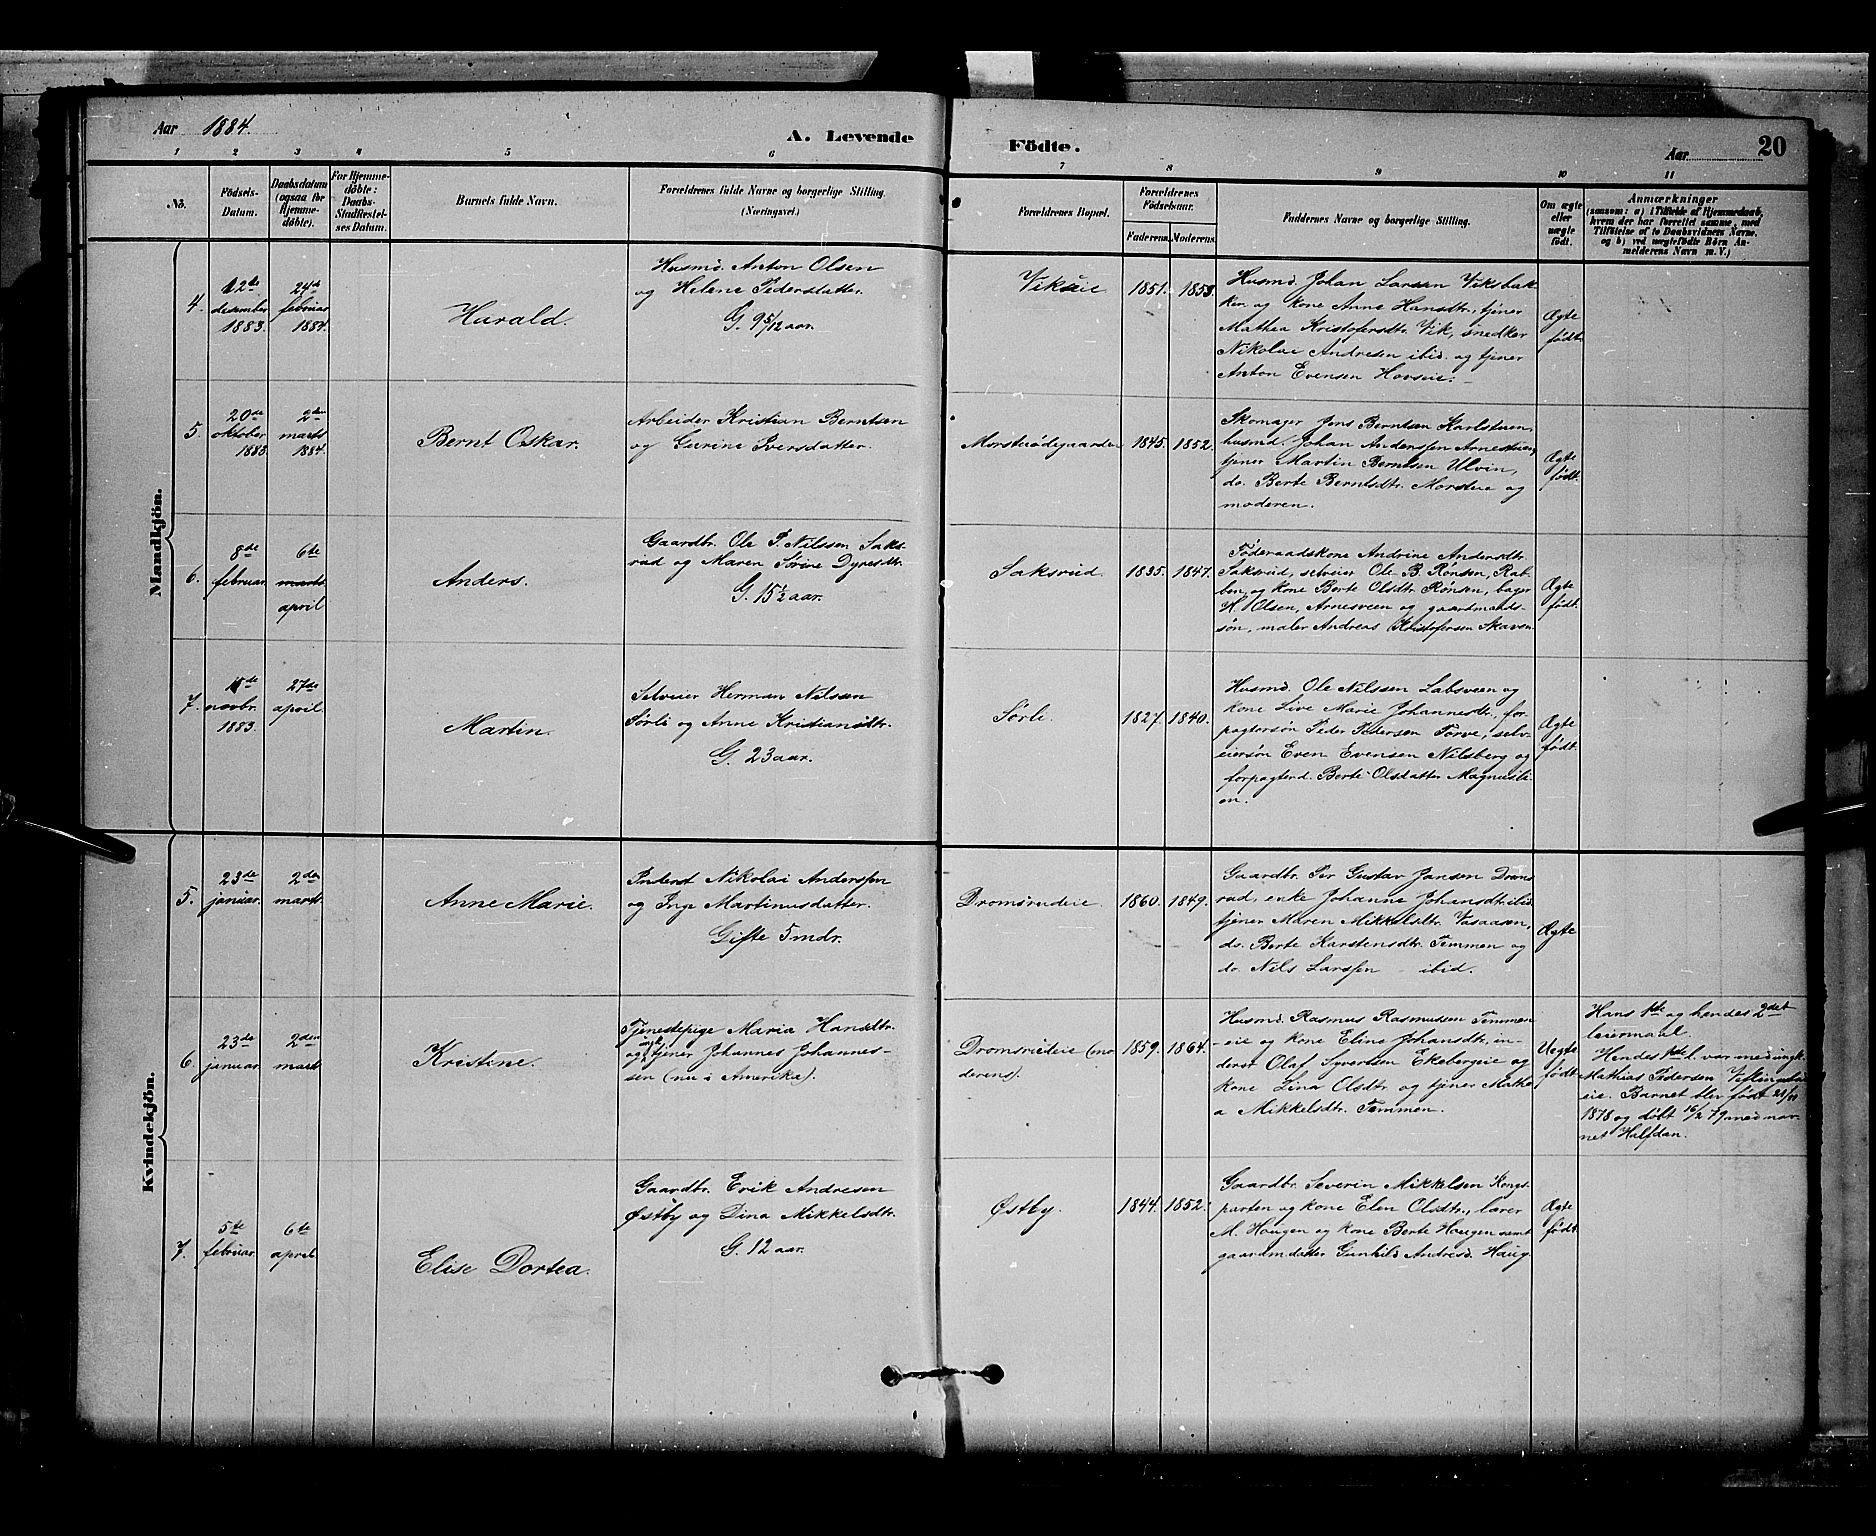 Aar 1884.
A. Levende
Födte.
Aar
20
1 2 3 4 5 6 7 8 9 10 11
No.
Födsels-
Datum.
Daabsdatum
(ogsaa for
Hjemme-
döbte).
For Hjemme-
döbte:
Daabs-
Stadfæstel-
ses Datum.
Barnets fulde Navn.
Forældrenes fulde Navne og borgerlige Stilling.
(Næringsvei.)
Forældrenes Bopæl.
Forældrenes
Födselsaar.
Faderens. Moderens.
Faddernes Navne og borgerlige Stilling.
Om ægte
eller
uægte
födt.
Anmærkninger
(saasom: a) i Tilfælde af Hjemmedaab,
hvem der har forrettet samme, med
Tilföielse af to Daabsvidners Navne.
og b) ved uægtefödte Börn An-
melderens Navn m. V.)
Mandkjön.
4.
12te
desember
1883.
24de
februar
1884.
Harald.
Husmd. Anton Olsen
og Helene Pedersdatter.
G. 9 5/12 aar.
Vikseie
1851. 1853.
Husmd. Johan Larsen Viksbak-
ken og kone Anne Hansdtr., tjener
Mathea Kristofersdtr. Vik, snedker
Nikolai Andresen ibid. og tjener
Anton Evensen Hovseie.
Ægte
født.
5.
20de
oktober
1883.
2den
marts
1884.
Bernt Oskar.
Arbeider Kristian Berntsen
og Gurine Iversdatter.
Morsterødegaarden
1845. 1852.
Skomager Jens Berntsen Karlstuen,
husmd. Johan Anderssen Arnestuen,
tjener Martin Berntsen Ulvin,
do. Berte Berntsdtr. Morsteie og
moderen.
Ægte
født.
6.
8de
februar.
6te
marts
april
Anders.
Gaardbr. Ole P. Nilssen Saks-
rud og Maren Sørine Dyresdtr.
G. 15 1/2 aar.
Saksrud.
1835. 1847.
Føderaadskone Andrine Andersdtr.
Saksrud, selveier Ole B. Rønsen, Rab-
ben, og kone Berte Olsdtr. Rønsen, bager
H. Olsen, Arnesveen og gaardmands-
søn, maler Andreas Kristofersen Skaven.
Ægte
født.
7.
novbr.
1883.
27de
april.
Martin.
Selveier Herman Nilssen
Sørli og Anne Kristiansdtr.
G. 23 aar.
Sørli.
1827. 1840.
Husmd. Ole Nilssen Labsveen og
kone Live Marie Johannesdtr., for-
pagtersøn Peder Pedersen Torve, selv-
eiersøn Even Evensen Nilsberg og
forpagterd. Berte Olsdatter Magnusli-
en.
Ægte
født.
Kvindekjön.
5.
23de
januar.
2den
marts.
Anne Marie.
Inderst Nikolai Anderssen
og Inge Martinusdatter.
Gifte 5 mdr.
Dromsrudeie.
1860. 1849.
Gaardbr. Per Gustav Jansen Droms-
rud, enke Johanne Johansdtr. ibid.
tjener Maren Mikkelsdtr. Vasaasen,
do. Berte Karstensdtr. Temmen og
do. Nils Larssen – ibid.
Ægte
6.
23de
januar.
2den
marts
Kristine.
Tjenestepige Maria Hansdtr.
og ungk. tjener Johannes Johannes-
sen (nu i Amerika).
Dromsrudeie (mo
derens).
1859. 1864.
Husmd. Rasmus Rasmussen Temmen-
eie og kone Eline Johansdtr., in-
derst Olaf Syvertsen Ekebergeie og
kone Lina Olsdtr. og tjener Mathe
a Mikkelsdtr. Temmen.
Uegte
født
Hans 1ste og hendes 2det
leiermaal.
Hendes 1ste l. var med ungk.
Mathias Pedersen
eie. Barnet blev født
1878 og døbt 16/2 79 med nav-
net Halfdan.
7.
5te
februar.
6te
april.
Elise Dortea.
Gaardbr. Erik Andresen
Østby og Dina Mikkelsdtr.
G. 12 aar.
Østby.
1844. 1852.
Gaardbr. Severin Mikkelsen Kongs-
parten og kone Elen Olsdtr., lærer
M. Haugen og kone Berte Haugen samt
gaardmdatter Gunhild Andresd. Haug.
Ægte
født.